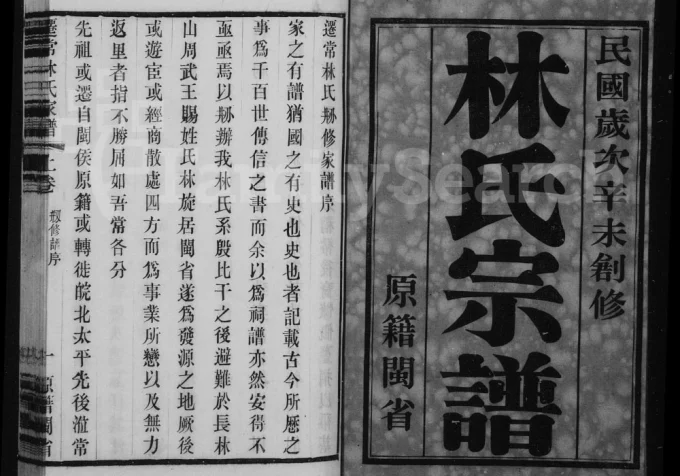 民國歲次辛未創修
林氏宗譜
原籍閩省
遷常林氏剏修家譜序
家之有譜猶國之有史也史也者記載古今所歷之
事爲千百世傳信之書而余以爲祠譜亦然安得不
亟亟焉以剏辦我林氏系殷比干之後避難於長林
山周武王賜姓氏林旋居閩省遂爲發源之地厥後
或遊宦或經商散處四方而爲事業所戀以及無力
返里者指不勝屈如吾常各分
先祖或遷自閩侯原籍或轉徙皖北太平先後涖常
遷常林氏家譜
上卷
剏修譜序
一
原籍閩省
FamilySearch